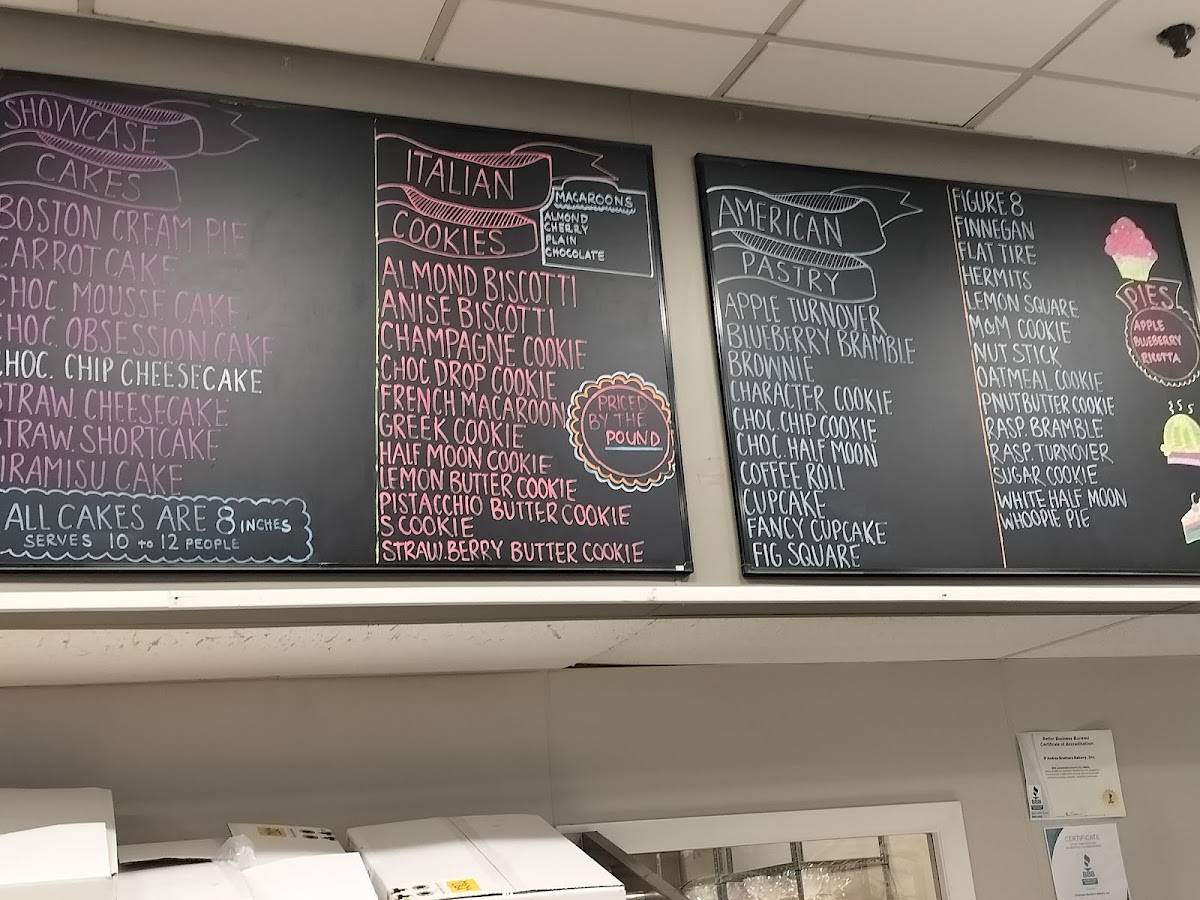 SHOWCASE
CAKES
BOSTON CREAM PIE
CARROT CAKE
CHOC. MOUSSE CAKE
CHOC. OBSESSION CAKE
CHOC. CHIP CHEESECAKE
STRAW. CHEESECAKE
STRAW. SHORTCAKE
TIRAMISU CAKE
ALL CAKES ARE 8 INCHES
SERVES 10 to 12 PEOPLE
ITALIAN
COOKIES
ALMOND BISCOTTI
ANISE BISCOTTI
CHAMPAGNE COOKIE
CHOC. DROP COOKIE
FRENCH MACAROON
GREEK COOKIE
HALF MOON COOKIE
LEMON BUTTER COOKIE
PISTACCHIO BUTTER COOKIE
S COOKIE
STRAW.BERRY BUTTER COOKIE
MACAROONS
ALMOND
CHERRY
PLAIN
CHOCOLATE
PRICED
BY THE
POUND
AMERICAN
PASTRY
APPLE TURNOVER
BLUEBERRY BRAMBLE
BROWNIE
CHARACTER COOKIE
CHOC. CHIP COOKIE
CHOC. HALF MOON
COFFEE ROLL
CUPCAKE
FANCY CUPCAKE
FIG SQUARE
FIGURE 8
FINNEGAN
FLAT TIRE
HERMITS
LEMON SQUARE
M&M COOKIE
NUT STICK
OATMEAL COOKIE
PNUTBUTTER COOKIE
RASP. BRAMBLE
RASP. TURNOVER
SUGAR COOKIE
WHITE HALF MOON
WHOOPIE PIE
PIES
APPLE
BLUEBERRY
RICOTTA
Better Business Bureau
Certificate of Accreditation
BBB
CERTIFICATE
BBB